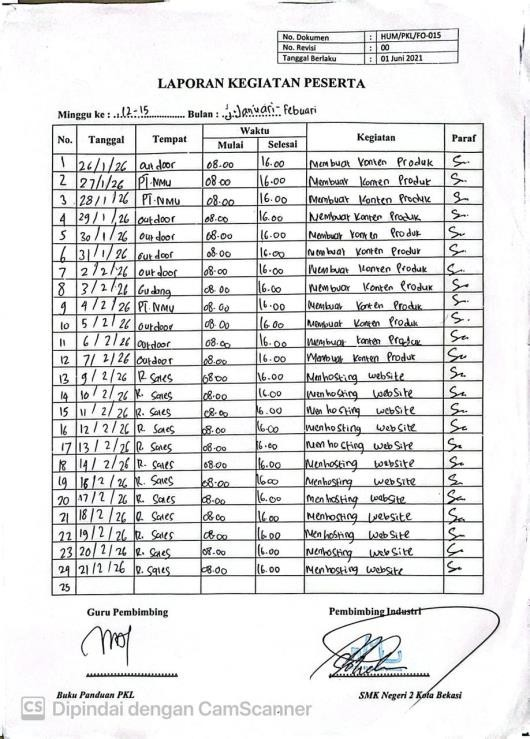 No. Dokumen : HUM/PKL/FO-015
No. Revisi : 00
Tanggal Berlaku : 01 Juni 2021
LAPORAN KEGIATAN PESERTA
Minggu ke : 12-15 Bulan : Januari - Febuari
No. Tanggal Tempat Waktu Kegiatan Paraf
Mulai Selesai
1 26/1/26 outdoor 08.00 16.00 Membuat Konten Produk
2 27/1/26 PT.NMU 08.00 16.00 Membuat Konten Produk
3 28/1/26 PT.NMU 08.00 16.00 Membuat Konten Produk
4 29/1/26 outdoor 08.00 16.00 Membuat Konten Produk
5 30/1/26 outdoor 08.00 16.00 Membuat Konten Produk
6 31/1/26 outdoor 08.00 16.00 Membuat Konten Produk
7 2/2/26 outdoor 08.00 16.00 Membuat Konten Produk
8 3/2/26 Gudang 08.00 16.00 Membuat Konten Produk
9 4/2/26 PT.NMU 08.00 16.00 Membuat Konten Produk
10 5/2/26 outdoor 08.00 16.00 Membuat Konten Produk
11 6/2/26 outdoor 08.00 16.00 Membuat Konten Produk
12 7/2/26 outdoor 08.00 16.00 Membuat Konten Produk
13 9/2/26 R. Sales 08.00 16.00 Menhosting website
14 10/2/26 R. Sales 08.00 16.00 Menhosting website
15 11/2/26 R. Sales 08.00 16.00 Menhosting website
16 12/2/26 R. Sales 08.00 16.00 Menhosting website
17 13/2/26 R. Sales 08.00 16.00 Menhosting website
18 14/2/26 R. Sales 08.00 16.00 Menhosting website
19 16/2/26 R. Sales 08.00 16.00 Menhosting website
20 17/2/26 R. Sales 08.00 16.00 Menhosting website
21 18/2/26 R. Sales 08.00 16.00 Menhosting website
22 19/2/26 R. Sales 08.00 16.00 Menhosting website
23 20/2/26 R. Sales 08.00 16.00 Menhosting website
24 21/2/26 R. Sales 08.00 16.00 Menhosting website
25
Guru Pembimbing Pembimbing Industri
Buku Panduan PKL SMK Negeri 2 Kota Bekasi
CS Dipindai dengan CamScanner